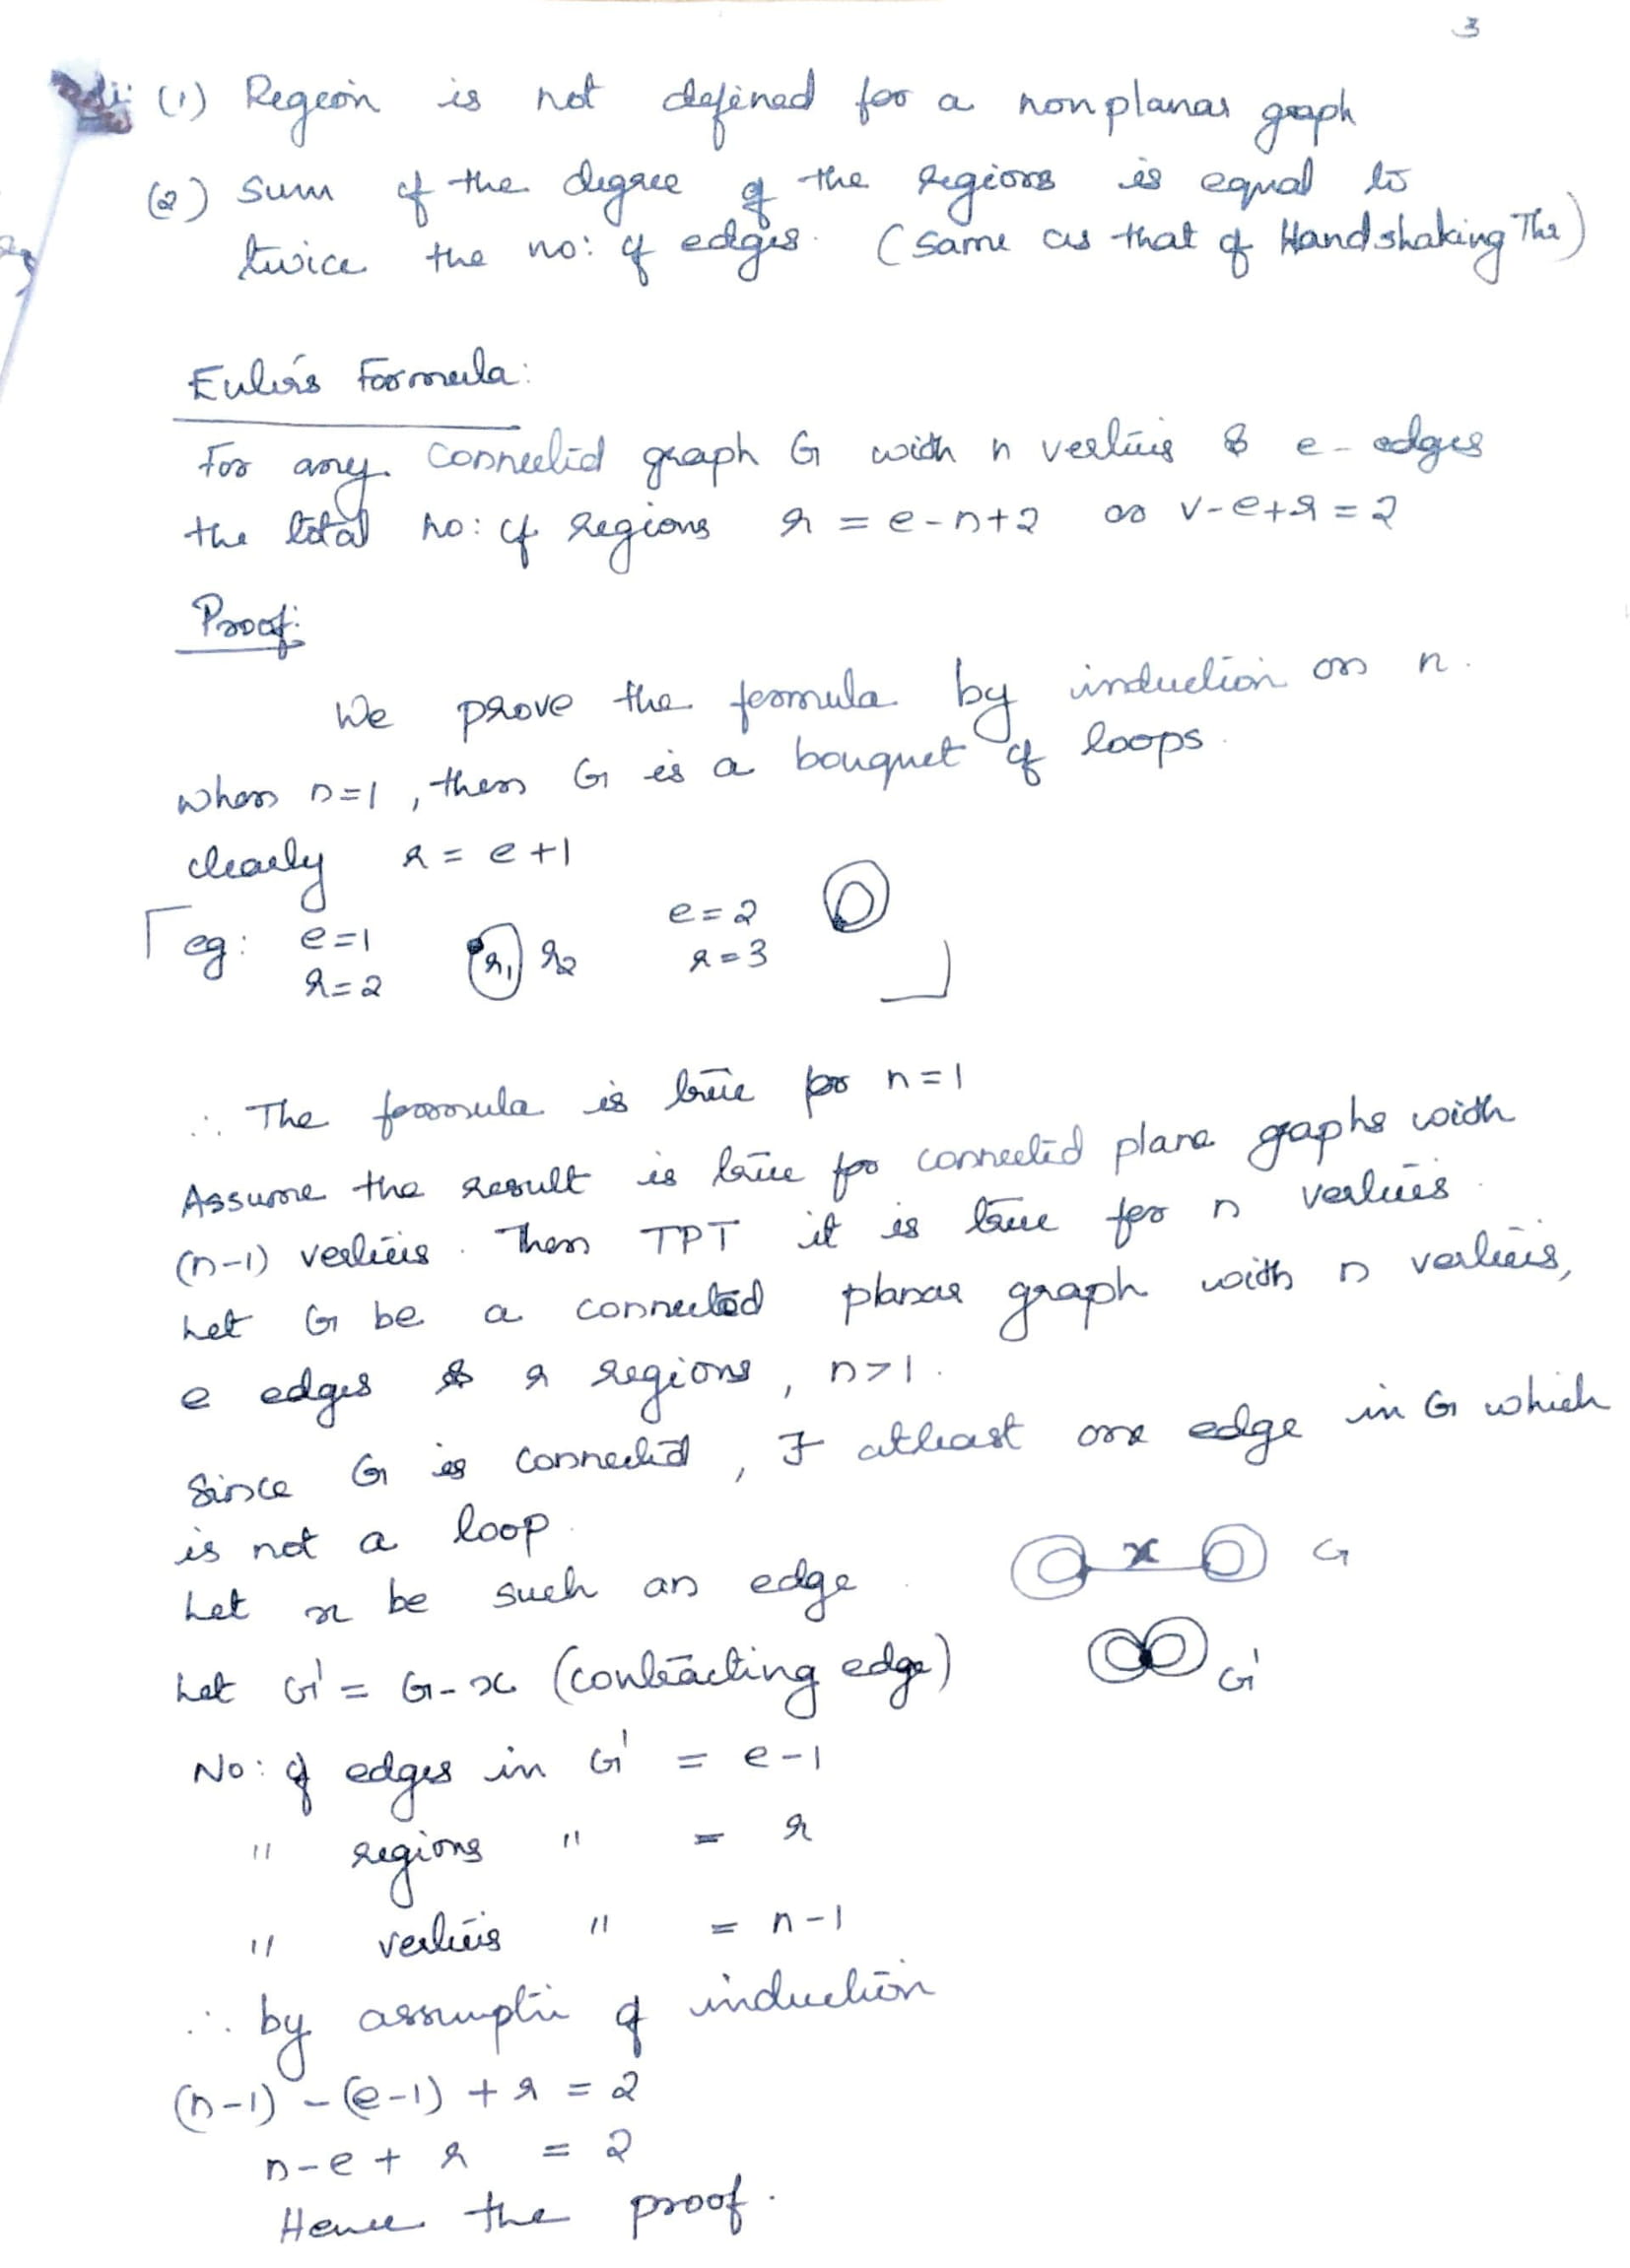 3
(1) Region is not defined for a nonplanar graph
(2) Sum of the degree of the regions is equal to
twice the no: of edges. (Same as that of Handshaking Thr)
Euler's Formula:
For any connected graph G with n vertices & e-edges
the total no: of regions r = e-n+2 or v-e+r = 2
Proof:
We prove the formula by induction on n.
when n=1, then G is a bouquet of loops.
clearly r = e+1
eg: e=1 r1 r2 e=2
r=2 r=3
∴ The formula is true for n=1
Assume the result is true for connected plane graphs with
(n-1) vertices. Then TPT it is true for n vertices.
Let G be a connected planar graph with n vertices,
e edges & r regions, n>1.
Since G is connected, ∃ atleast one edge in G which
is not a loop.
x G
Let x be such an edge.
Let G' = G-x (contracting edge) G'
No: of edges in G' = e-1
" regions " = r
" vertices " = n-1
∴ by assumptn of induction
(n-1) - (e-1) + r = 2
n-e + r = 2
Hence the proof.